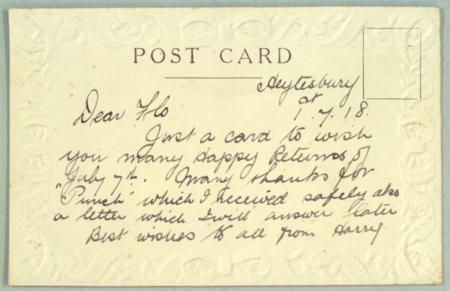 POST CARD
Heytesbury
at
1.7.18.
Dear Flo
Just a card to wish
you many Happy Returns of
July 7th. Many thanks for
"Punch" which I received safely also
a letter which I will answer later
Best wishes to all from Harry.